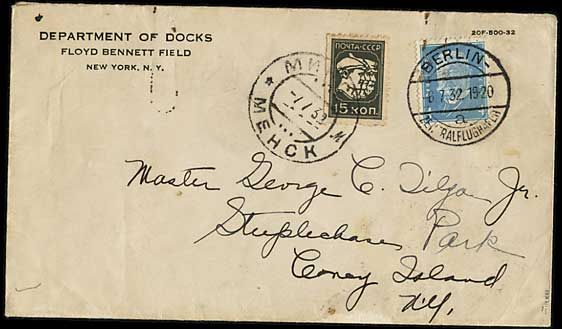 DEPARTMENT OF DOCKS
FLOYD BENNETT FIELD
NEW YORK, N. Y.
20F-500-32
ПОЧТА·СССР
15 КОП.
МИ
МЕНСК
BERLIN-
7.32.19-20
a
Master George C. Tilyou Jr.
Steeplechase Park
Coney Island
N.Y.